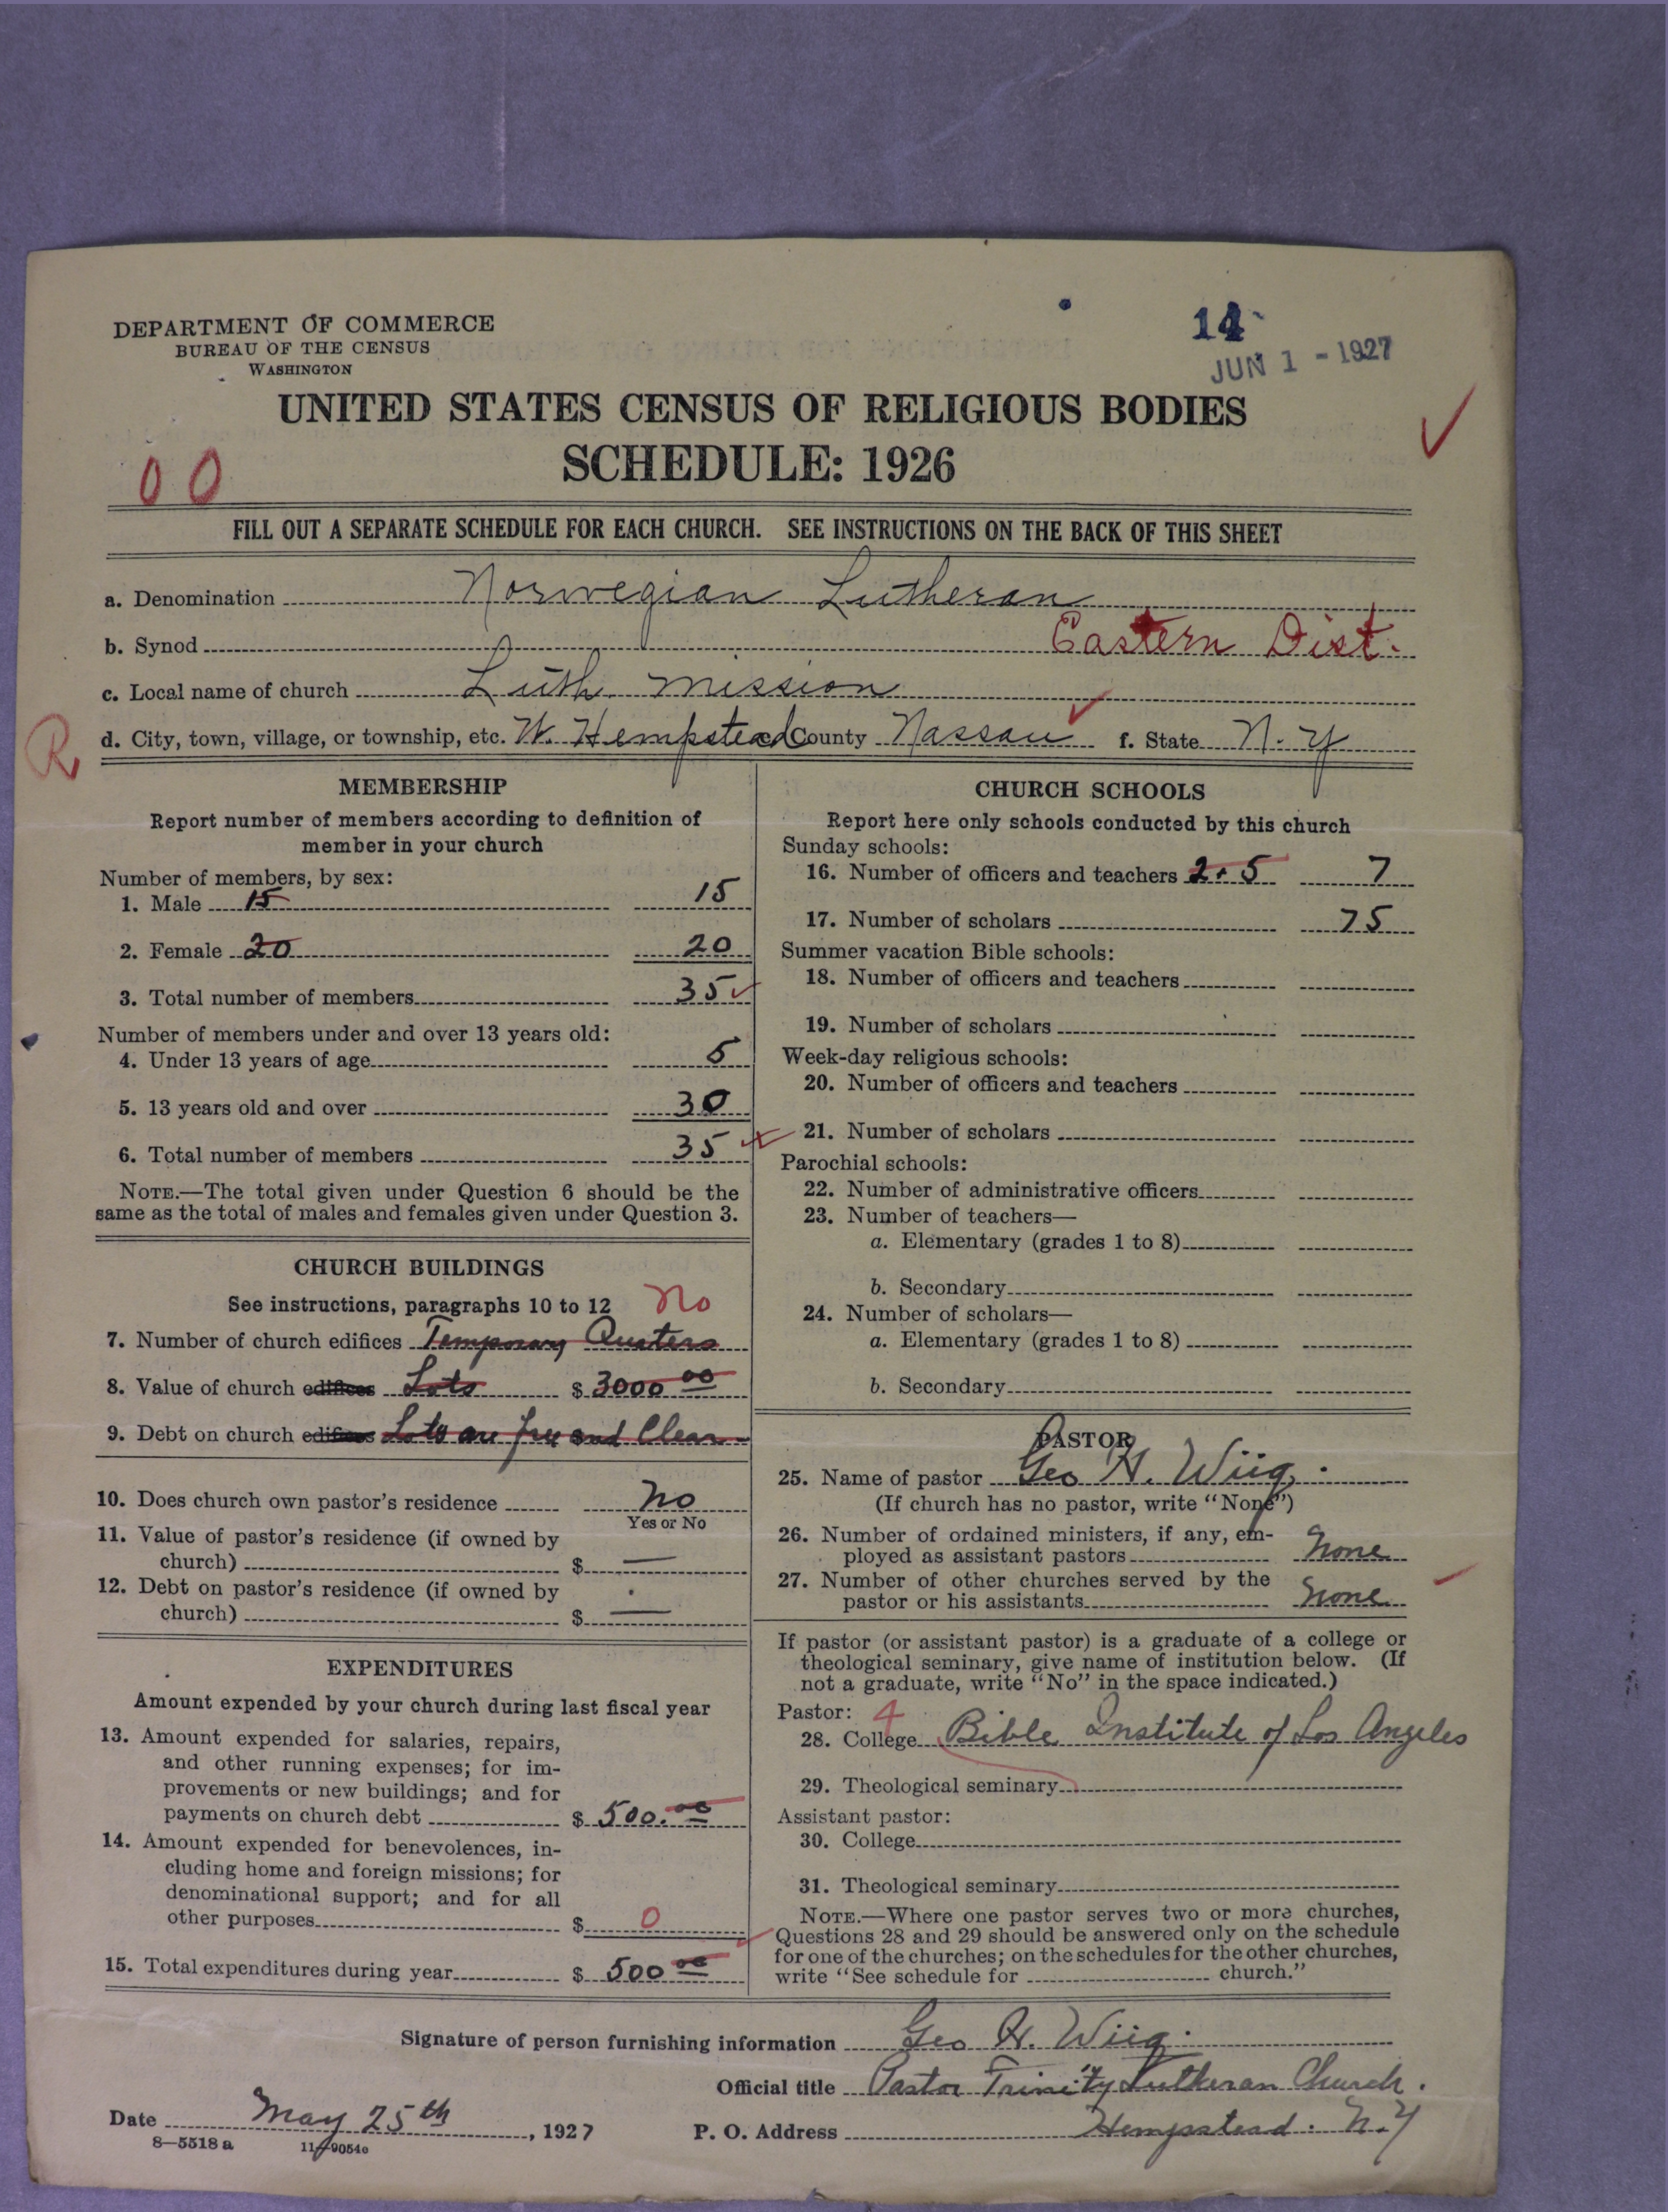 DEPARTMENT OF COMMERCE
BUREAU OF THE CENSUS
WASHINGTON
14
JUN 1 - 1927
UNITED STATES CENSUS OF RELIGIOUS BODIES
SCHEDULE: 1926
00
FILL OUT A SEPARATE SCHEDULE FOR EACH CHURCH. SEE INSTRUCTIONS ON THE BACK OF THIS SHEET
a. Denomination Norwegian Lutheran
b. Synod Eastern Dist.
c. Local name of church Luth. Mission
R
d. City, town, village, or township, etc. W. Hempstead County Nassau f. State N. Y
MEMBERSHIP
Report number of members according to definition of
member in your church
Number of members, by sex:
1. Male 15 15
2. Female 20 20
3. Total number of members 35
Number of members under and over 13 years old:
4. Under 13 years of age 5
5. 13 years old and over 30
6. Total number of members 35
NOTE.—The total given under Question 6 should be the
same as the total of males and females given under Question 3.
CHURCH BUILDINGS
See instructions, paragraphs 10 to 12 no
7. Number of church edifices Temporary Quaters
8. Value of church edifices Lots $ 3000 00
9. Debt on church edifices Lots are free and Clear
10. Does church own pastor's residence no
Yes or No
11. Value of pastor's residence (if owned by
church) $ —
12. Debt on pastor's residence (if owned by
church) $ —
EXPENDITURES
Amount expended by your church during last fiscal year
13. Amount expended for salaries, repairs,
and other running expenses; for im-
provements or new buildings; and for
payments on church debt $ 500.00
14. Amount expended for benevolences, in-
cluding home and foreign missions; for
denominational support; and for all
other purposes $ 0
15. Total expenditures during year $ 500 00
CHURCH SCHOOLS
Report here only schools conducted by this church
Sunday schools:
16. Number of officers and teachers 2+5 7
17. Number of scholars 75
Summer vacation Bible schools:
18. Number of officers and teachers
19. Number of scholars
Week-day religious schools:
20. Number of officers and teachers
21. Number of scholars
Parochial schools:
22. Number of administrative officers
23. Number of teachers—
a. Elementary (grades 1 to 8)
b. Secondary
24. Number of scholars—
a. Elementary (grades 1 to 8)
b. Secondary
PASTOR
25. Name of pastor Geo H. Wiig.
(If church has no pastor, write "None")
26. Number of ordained ministers, if any, em-
ployed as assistant pastors None
27. Number of other churches served by the
pastor or his assistants None
If pastor (or assistant pastor) is a graduate of a college or
theological seminary, give name of institution below. (If
not a graduate, write "No" in the space indicated.)
Pastor: 4
28. College Bible Institute of Los Angeles
29. Theological seminary
Assistant pastor:
30. College
31. Theological seminary
NOTE.—Where one pastor serves two or more churches,
Questions 28 and 29 should be answered only on the schedule
for one of the churches; on the schedules for the other churches,
write "See schedule for church."
Signature of person furnishing information Geo H. Wiig.
Official title Pastor Trinity Lutheran Church.
Date May 25th, 1927 P. O. Address Hempstead. N.Y
8—5518 a 11—9054c